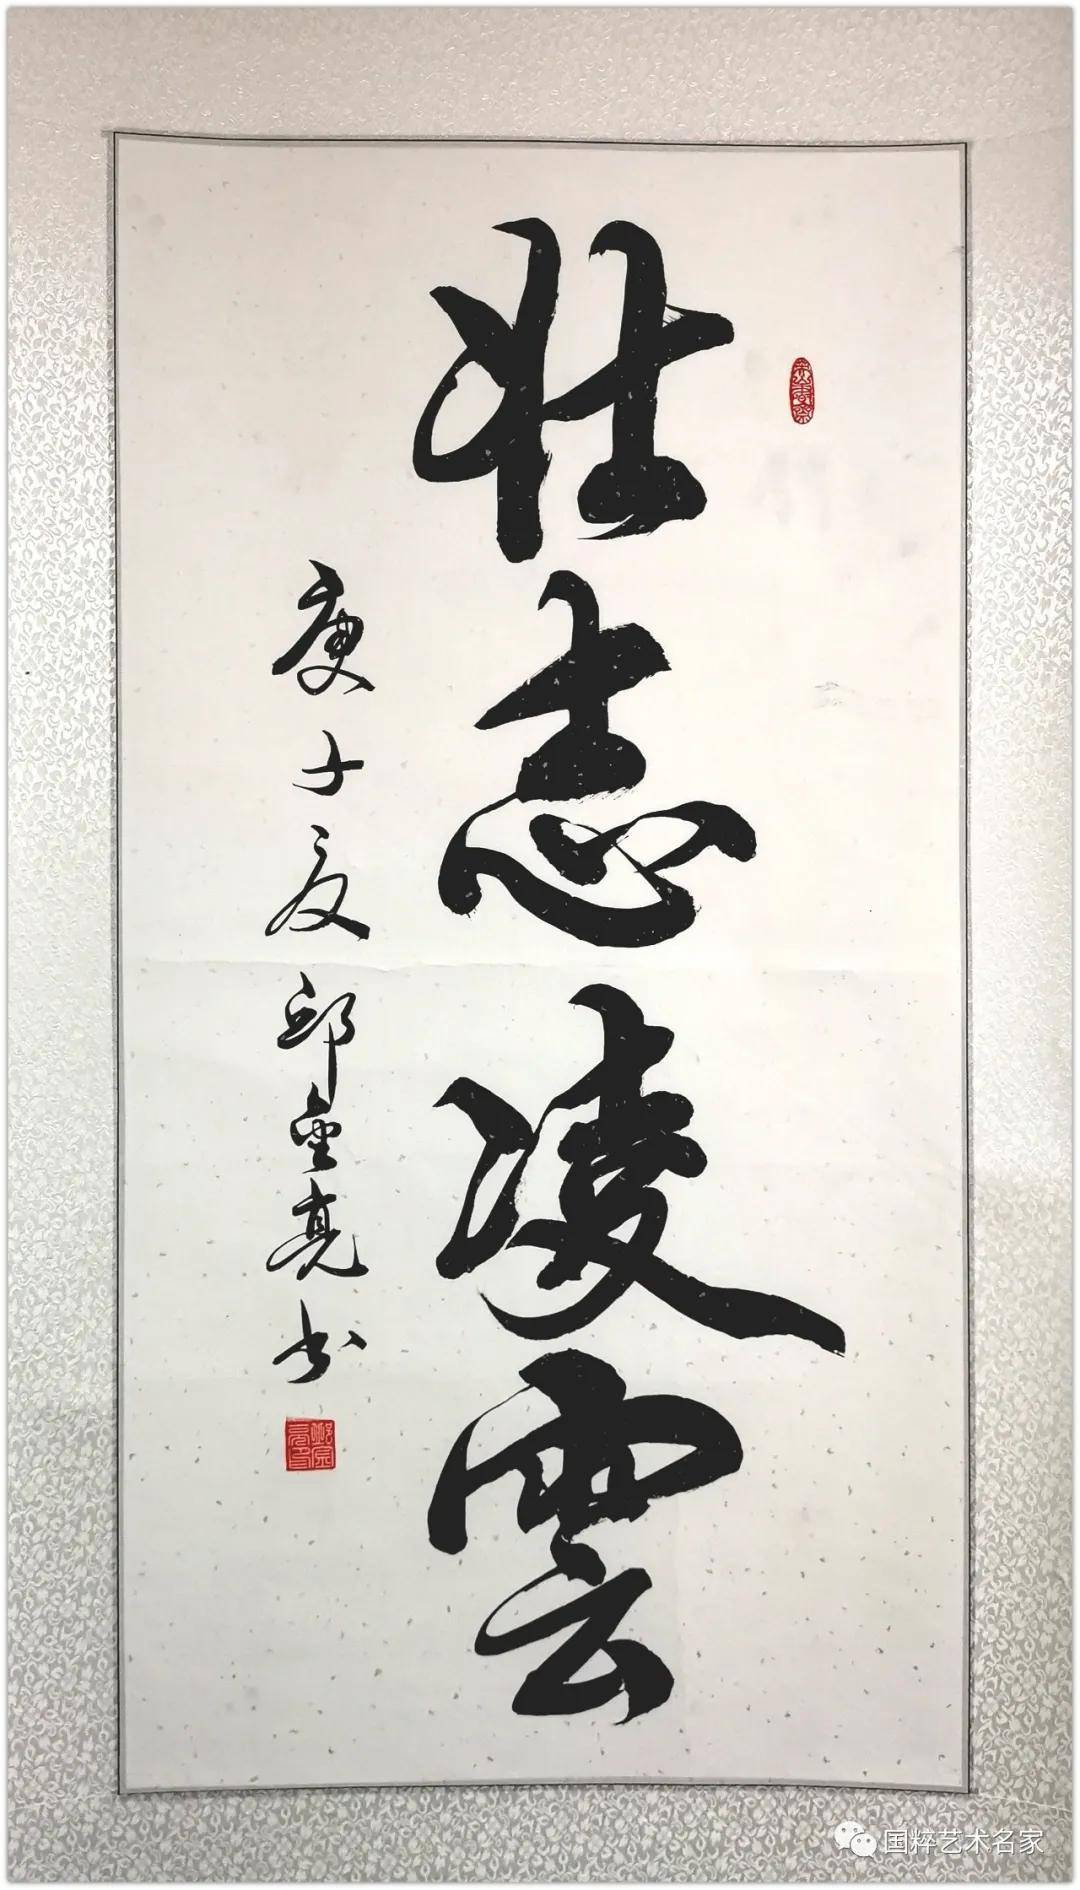 壮志凌雲
庚子夏邱金亮书
国粹艺术名家